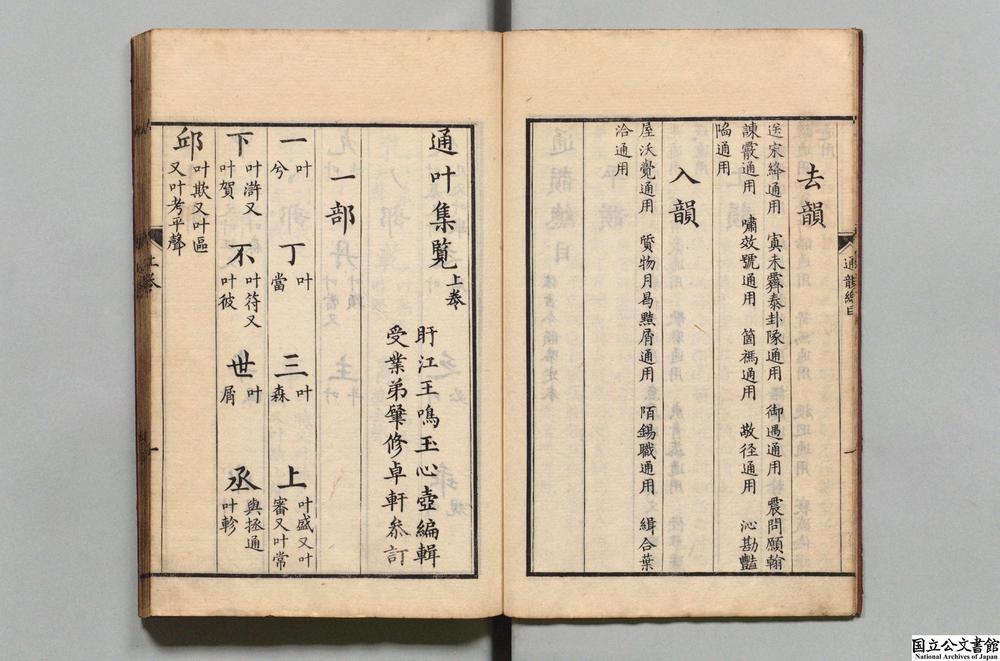 去韻
送宋絳通用 寘未霽泰卦隊通用 御遇通用 震問願翰
諫霰通用 嘯效號通用 箇禡通用 敬径通用 沁勘豔
陷通用
入韻
屋沃覺通用 質物月曷黠屑通用 陌錫職通用 緝合葉
洽通用
通韻總目
一
通叶集覽上卷
盱江王鳴玉心壺編輯
受業弟肇修卓軒叅訂
一部
一叶兮 丁叶當 三叶森 上叶盛又叶審又叶常
下叶滸又叶賀 不叶符又叶彼 世叶屑 丞與拯通叶軫
邱叶欺又叶區又叶考平聲
上卷
一
国立公文書館
National Archives of Japan